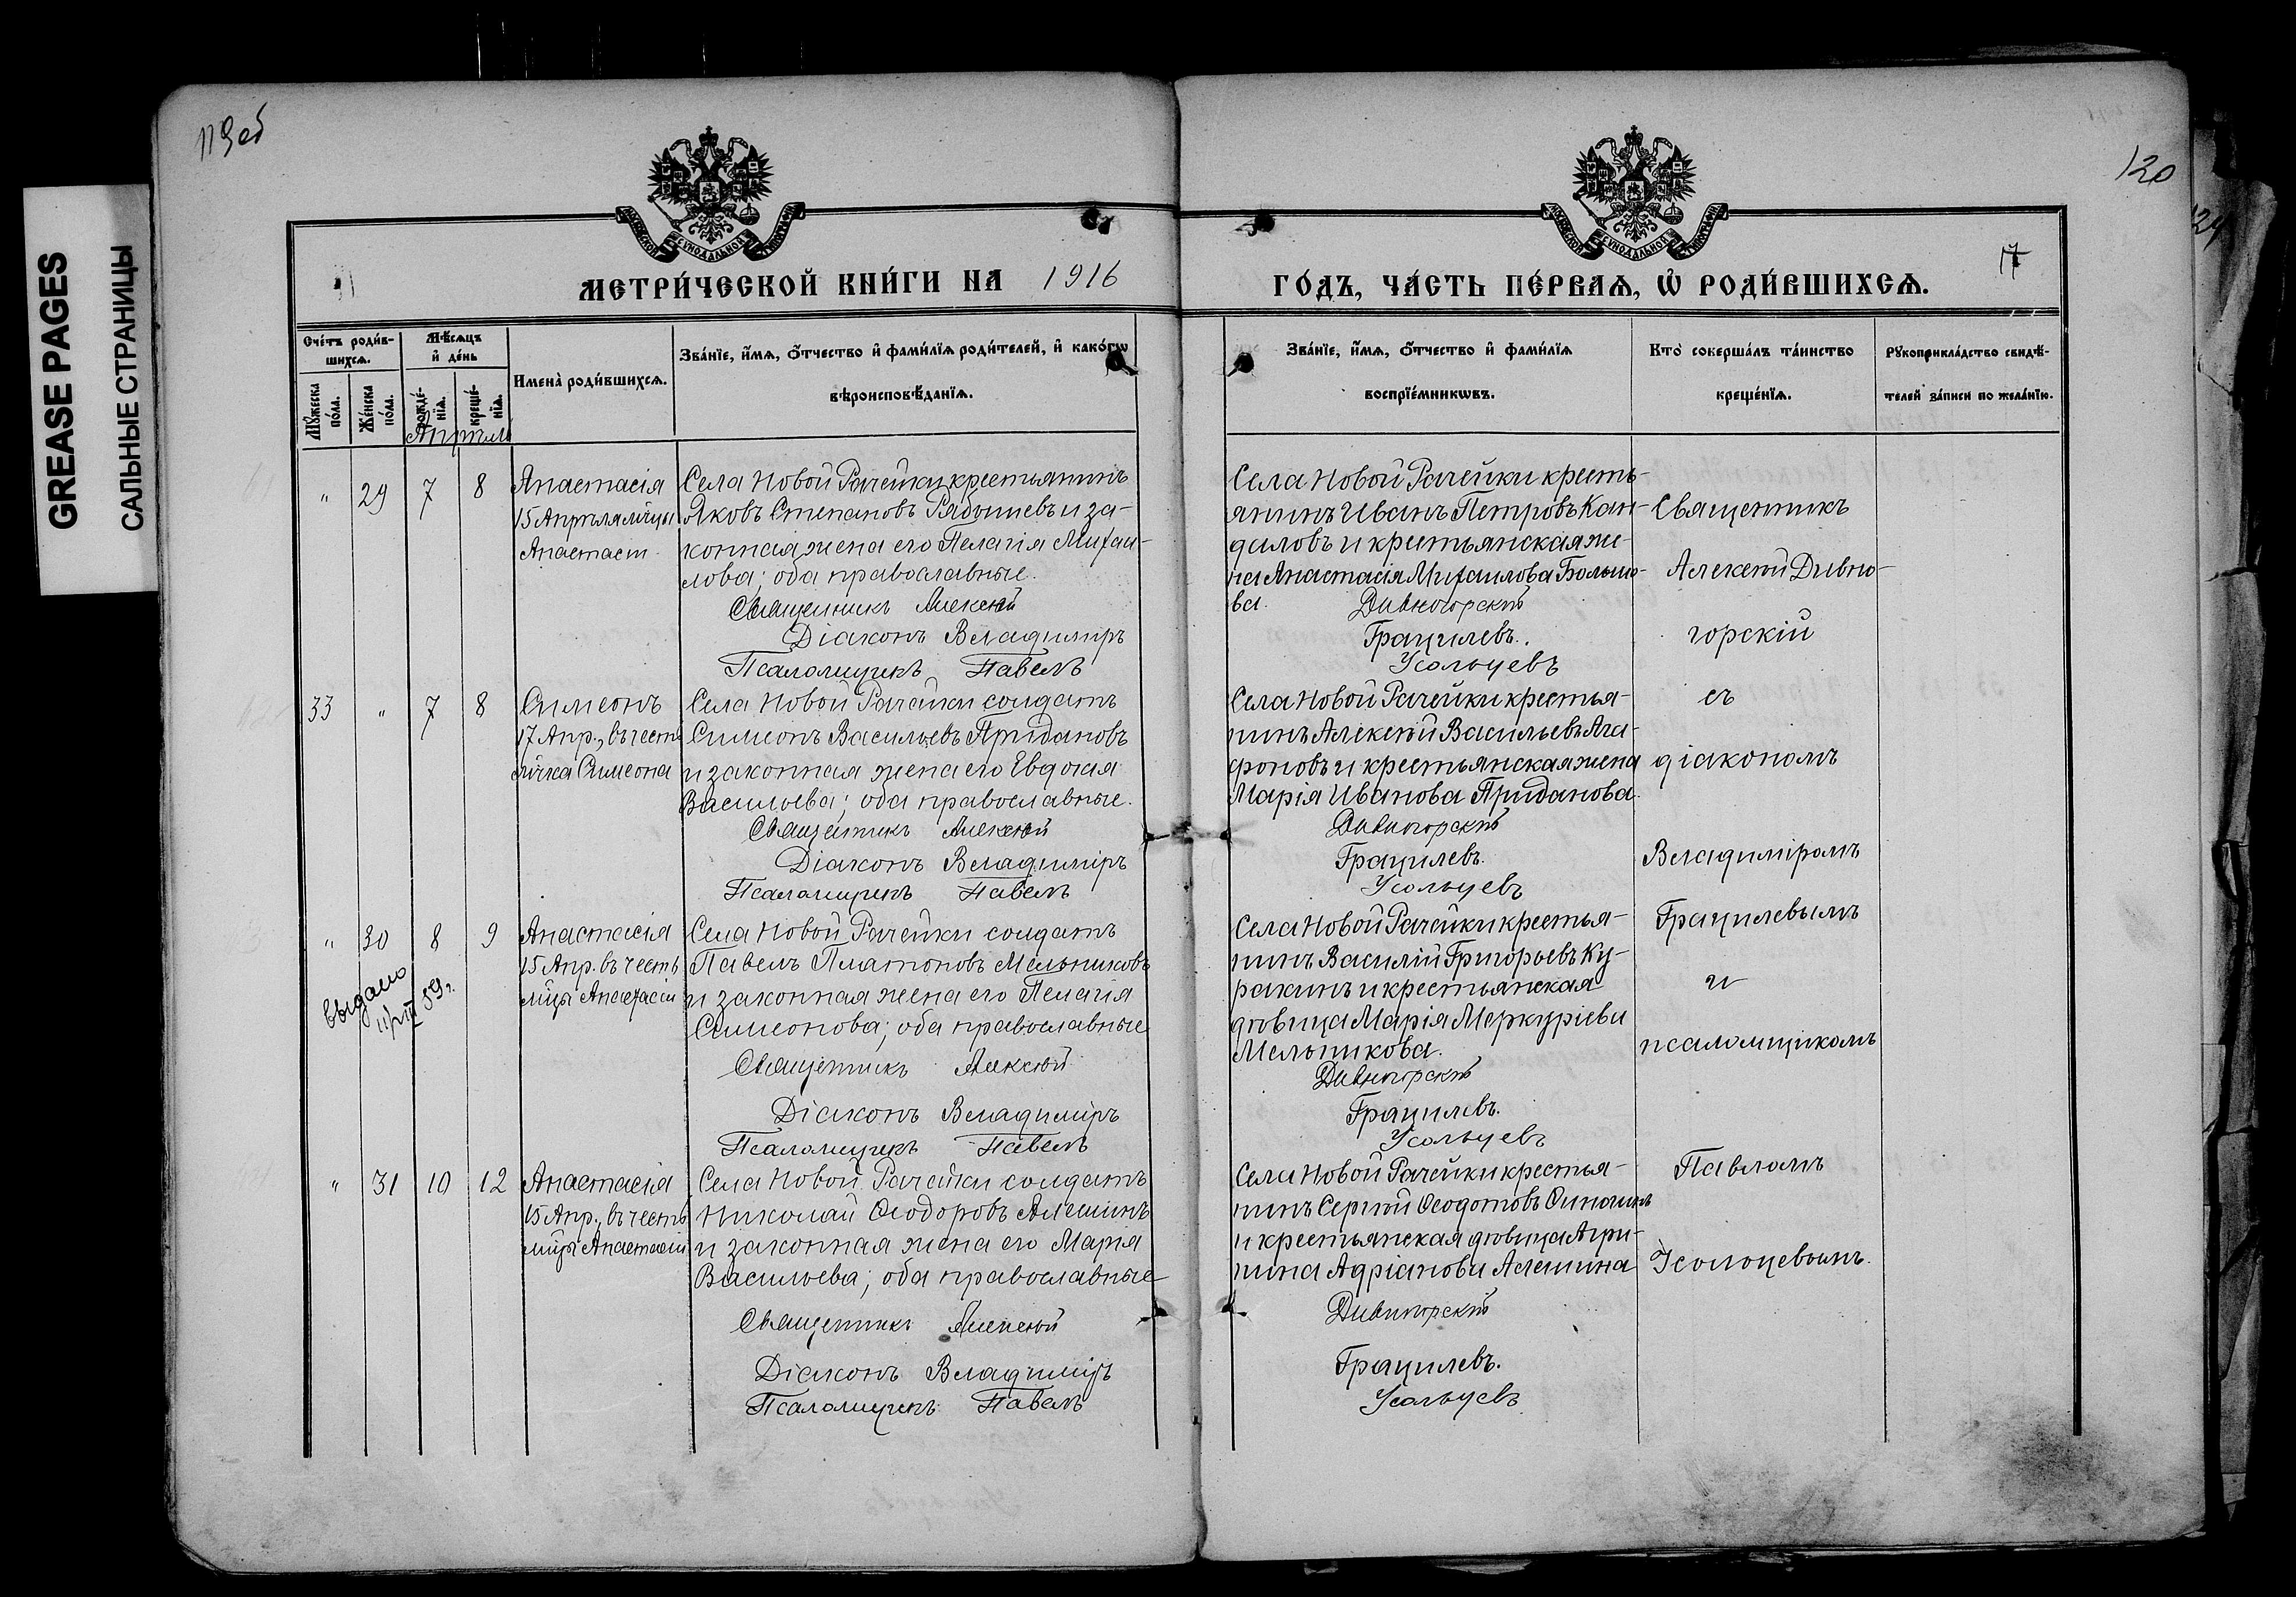 119 об
120
GREASE PAGES
САЛЬНЫЕ СТРАНИЦЫ
МЕТРИ́ЧЕСКОЙ КНИ́ГИ НА 1916
ГО́ДЪ, ЧА́СТЬ ПЕ́РВАѦ, Ѡ҆ РОДИ́ВШИХСѦ.
17
Сче́тъ роди́в-
шихсѧ.
Мѣ́сѧцъ
и҆ де́нь
Мꙋ́жеска
по́ла.
Же́нска
по́ла.
рожде́-
нїѧ.
креще́-
нїѧ.
Имена̀ роди́вшихсѧ.
Зва́нїе, и҆́мѧ, ѻ҆́тчество и҆ фами́лїѧ роди́телей, и҆ како́гѡ
вѣроисповѣ́данїѧ.
Зва́нїе, и҆́мѧ, ѻ҆́тчество и҆ фами́лїѧ
воспрїе́мникѡвъ.
Кто̀ соверша́лъ та́инство
креще́нїѧ.
Рꙋкоприкла́дство свидѣ́-
телей за́писи по жела́нїю.
Апрѣль
" 29 7 8
Анастасія
15 Апрѣля мч҃цы
Анастасіи
Села Новой Рачейки крестьянинъ
Яковъ Степановъ Рябышевъ и за-
конная жена его Пелагія Михаи-
лова; оба православные.
Священникъ Алексѣй
Діаконъ Владиміръ
Псаломщикъ Павелъ
Села Новой Рачейки кресть-
янинъ Иванъ Петровъ Кан-
даловъ и крестьянская же-
на Анастасія Михаилова Больша-
ва.
Дивногорскій
Грацилевъ.
Усольцевъ
33 " 7 8
Симеонъ
17 Апр., въ честь
сщ҃мчка Симеона
Села Новой Рачейки солдатъ
Симеонъ Васильевъ Придановъ
и законная жена его Евдокія
Васильева; оба православные.
Священникъ Алексѣй
Діаконъ Владиміръ
Псаломщикъ Павелъ
Села Новой Рачейки крестья-
нинъ Алексѣй Васильевъ Ага-
фоновъ и крестьянская жена
Марія Иванова Приданова.
Дивногорскій
Грацилевъ.
Усольцевъ
" 30 8 9
выдано
59 г.
Анастасія
15 Апр. въ честь
мц҃ы Анастасіи
Села Новой Рачейки солдатъ
Павелъ Платоновъ Мельниковъ
и законная жена его Пелагія
Симеонова; оба православные
Священникъ Алексѣй
Діаконъ Владиміръ
Псаломщикъ Павелъ
Села Новой Рачейки крестья-
нинъ Василій Григорьевъ Ку-
ракинъ и крестьянская
дѣвица Марія Меркуріева
Мельникова.
Дивногорскій
Грацилевъ.
Усольцевъ
" 31 10 12
Анастасія
15 Апр., въ честь
мц҃ы Анастасіи
Села Новой Рачейки солдатъ
Николай Ѳеодоровъ Алешинъ
и законная жена его Марія
Васильева; оба православные
Священникъ Алексѣй
Діаконъ Владиміръ
Псаломщикъ Павелъ
Села Новой Рачейки крестья-
нинъ Сергѣй Ѳеодотовъ
и крестьянская дѣвица Агри-
пина Адріанова Алешина
Дивногорскій
Грацилевъ.
Усольцевъ
Священникъ
Алексѣй Дивно-
горскій
съ
діакономъ
Владиміромъ
Грацилевымъ
и
псаломщикомъ
Павломъ
Усольцевымъ.